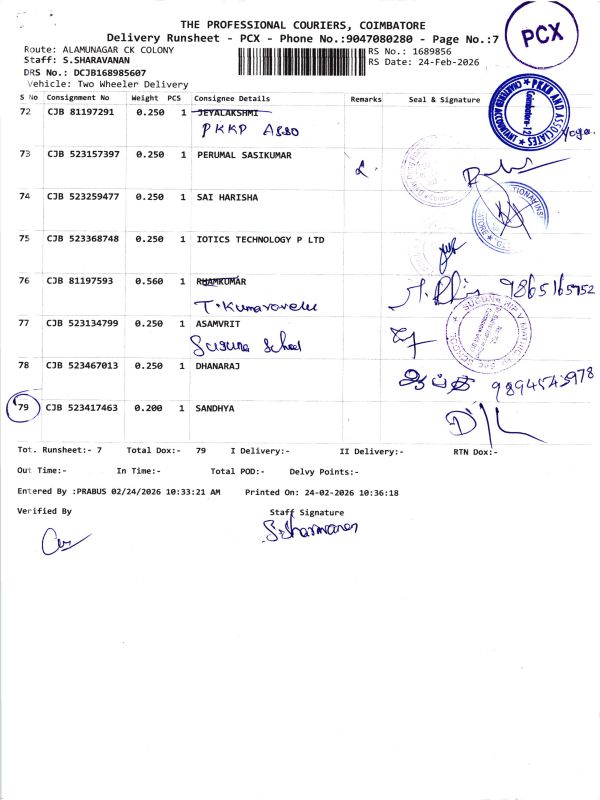 THE PROFESSIONAL COURIERS, COIMBATORE
Delivery Runsheet - PCX - Phone No.:9047080280 - Page No.:7
PCX
Route: ALAMUNAGAR CK COLONY
RS No.: 1689856
Staff: S.SHARAVANAN
RS Date: 24-Feb-2026
DRS No.: DCJB168985607
Vehicle: Two Wheeler Delivery
S No Consignment No Weight PCS Consignee Details Remarks Seal & Signature
72 CJB 81197291 0.250 1 JEYALAKSHMI
PKKP Asso
PKKB AND ASSOCIATES
CHARTERED ACCOUNTANTS
Coimbatore-12
Yoga.
73 CJB 523157397 0.250 1 PERUMAL SASIKUMAR
74 CJB 523259477 0.250 1 SAI HARISHA
75 CJB 523368748 0.250 1 IOTICS TECHNOLOGY P LTD
76 CJB 81197593 0.560 1 RHAMKUMAR
T. Kumaravelu
9865165952
77 CJB 523134799 0.250 1 ASAMVRIT
Suguna School
78 CJB 523467013 0.250 1 DHANARAJ
9894543978
79 CJB 523417463 0.200 1 SANDHYA
Tot. Runsheet:- 7 Total Dox:- 79 I Delivery:- II Delivery:- RTN Dox:-
Out Time:- In Time:- Total POD:- Delvy Points:-
Entered By :PRABUS 02/24/2026 10:33:21 AM Printed On: 24-02-2026 10:36:18
Verified By Staff Signature
S.Sharavanan